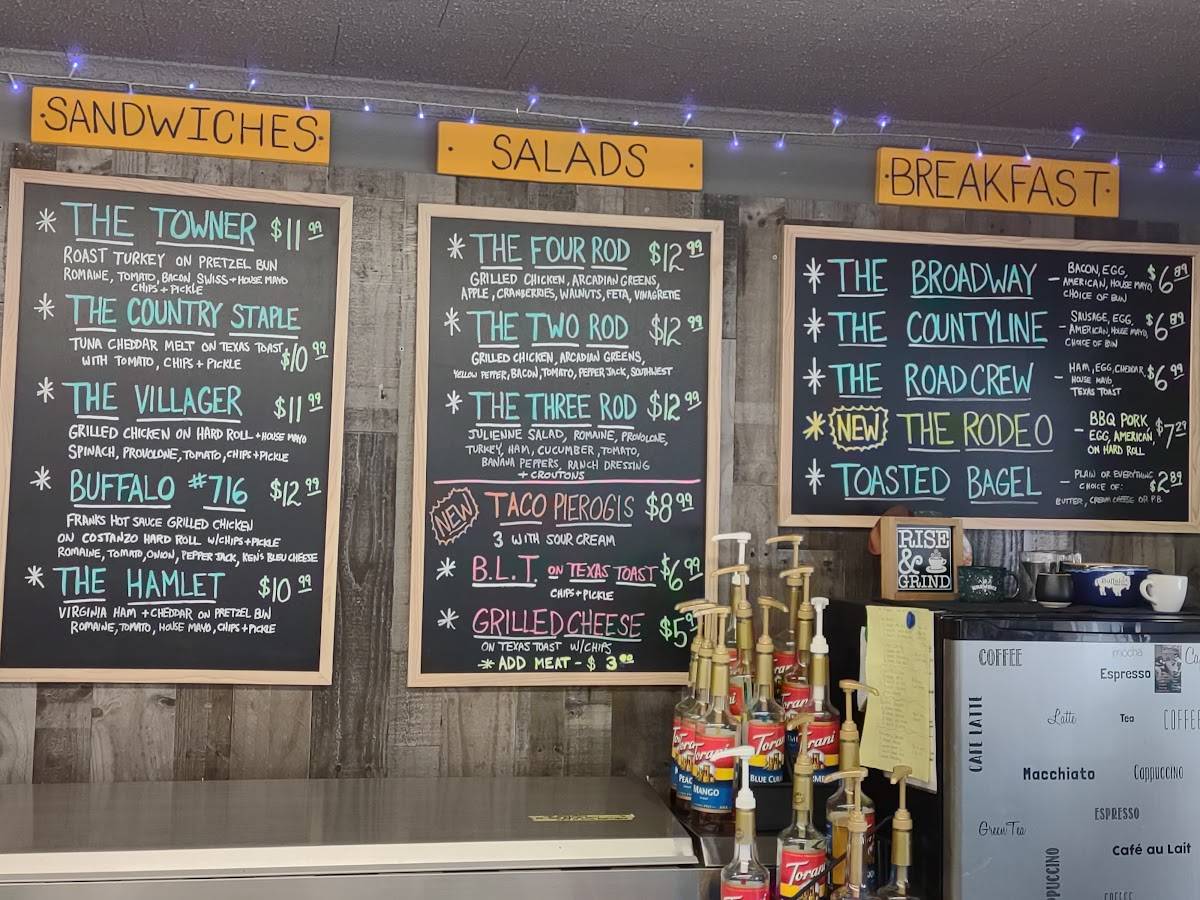 SANDWICHES
* THE TOWNER $11.99
ROAST TURKEY ON PRETZEL BUN
ROMAINE, TOMATO, BACON, SWISS + HOUSE MAYO
CHIPS + PICKLE
* THE COUNTRY STAPLE
TUNA CHEDDAR MELT ON TEXAS TOAST,
WITH TOMATO, CHIPS + PICKLE $10.99
* THE VILLAGER $11.99
GRILLED CHICKEN ON HARD ROLL + HOUSE MAYO
SPINACH, PROVOLONE, TOMATO, CHIPS + PICKLE
* BUFFALO #716 $12.99
FRANKS HOT SAUCE GRILLED CHICKEN
ON COSTANZO HARD ROLL W/CHIPS + PICKLE
ROMAINE, TOMATO, ONION, PEPPER JACK, KEN'S BLEU CHEESE
* THE HAMLET $10.99
VIRGINIA HAM + CHEDDAR ON PRETZEL BUN
ROMAINE, TOMATO, HOUSE MAYO, CHIPS + PICKLE
SALADS
* THE FOUR ROD $12.99
GRILLED CHICKEN, ARCADIAN GREENS,
APPLE, CRANBERRIES, WALNUTS, FETA, VINAGRETTE
* THE TWO ROD $12.99
GRILLED CHICKEN, ARCADIAN GREENS,
YELLOW PEPPER, BACON, TOMATO, PEPPER JACK, SOUTHWEST
* THE THREE ROD $12.99
JULIENNE SALAD, ROMAINE, PROVOLONE,
TURKEY, HAM, CUCUMBER, TOMATO,
BANANA PEPPERS, RANCH DRESSING
+ CROUTONS
NEW TACO PIEROGIS $8.99
3 WITH SOUR CREAM
* B.L.T. ON TEXAS TOAST $6.99
CHIPS + PICKLE
* GRILLED CHEESE $5
ON TEXAS TOAST W/CHIPS
* ADD MEAT - $3.00
BREAKFAST
* THE BROADWAY - BACON, EGG, $6.89
AMERICAN, HOUSE MAYO,
CHOICE OF BUN
* THE COUNTYLINE - SAUSAGE, EGG, $6.89
AMERICAN, HOUSE MAYO,
CHOICE OF BUN
* THE ROADCREW - HAM, EGG, CHEDDAR, $6.99
HOUSE MAYO
TEXAS TOAST
* NEW THE RODEO - BBQ PORK, $7.29
EGG, AMERICAN,
ON HARD ROLL
* TOASTED BAGEL - PLAIN OR EVERYTHING $2.89
CHOICE OF:
BUTTER, CREAM CHEESE OR P.B.
RISE
&
GRIND
Buffalo
COFFEE
mocha
Espresso
CAFE LATTE
Latte
Tea
COFFEE
Macchiato
Cappuccino
ESPRESSO
Green Tea
Café au Lait
Torani
Torani
MANGO
Torani
BLUE
Torani
Torani
Torani